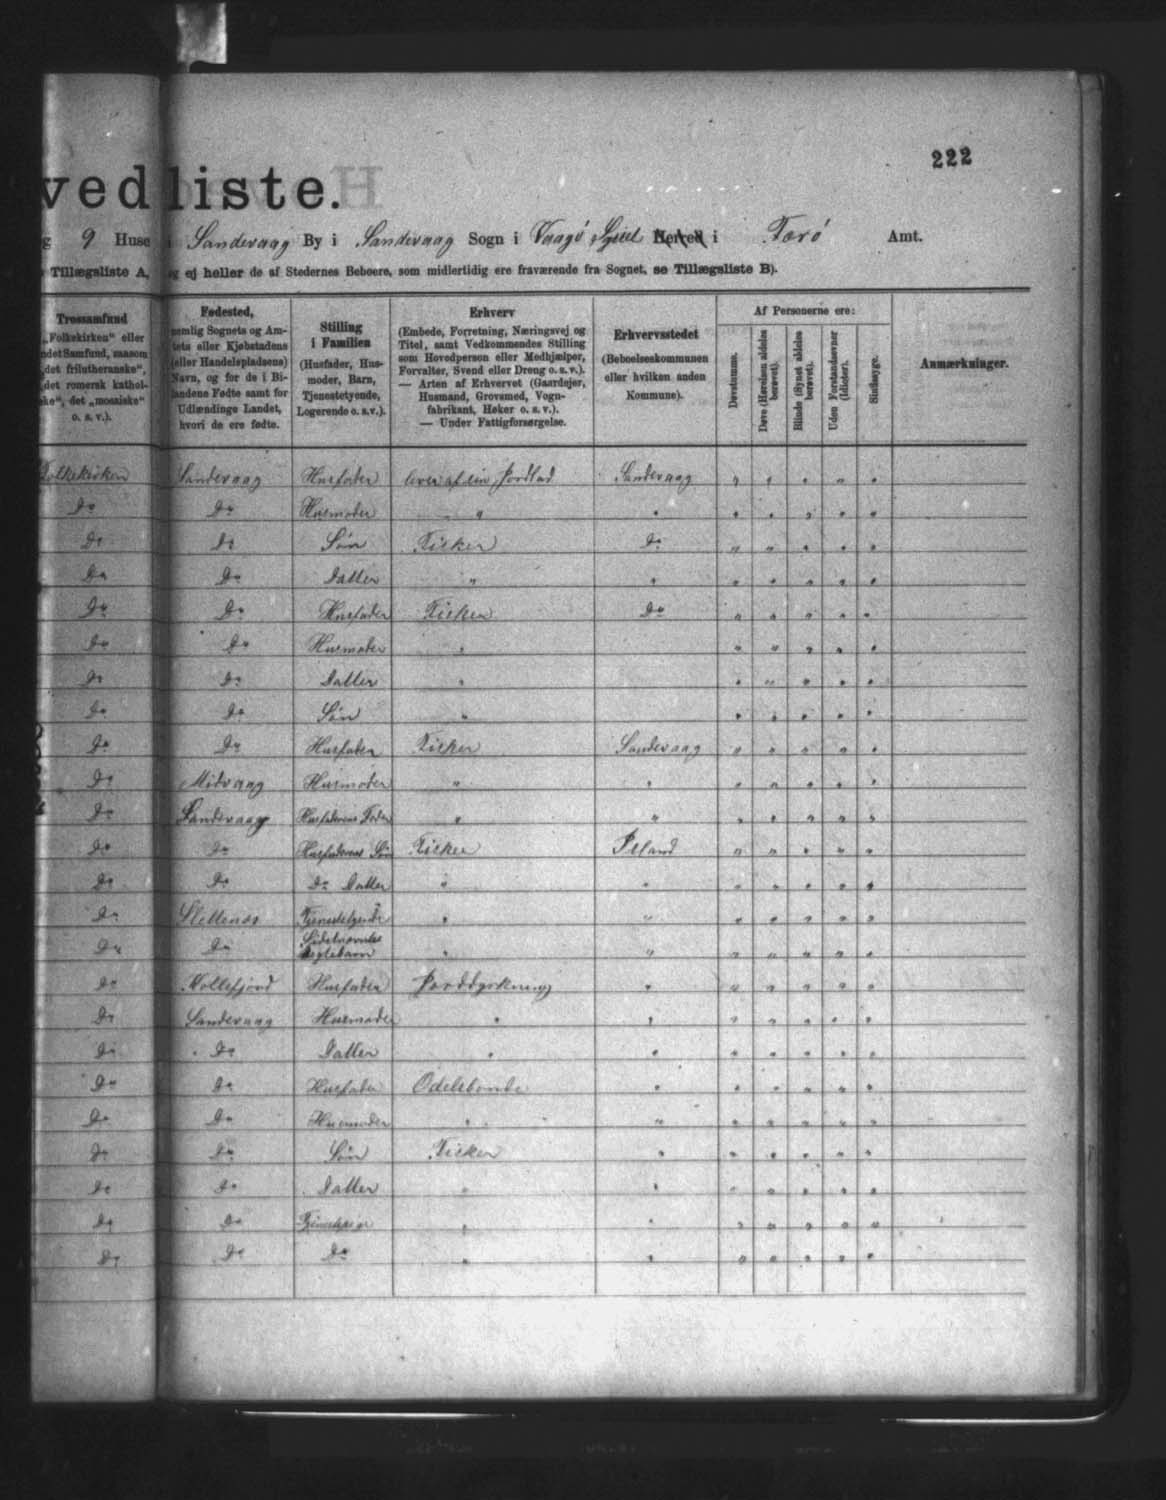 222
vedliste.
g 9 Huse i Sandevaag By i Sandevaag Sogn i Vaagø Syssel Herred i Færø Amt.
Tillægsliste A, og ej heller de af Stedernes Beboere, som midlertidig ere fraværende fra Sognet, se Tillægsliste B).
Trossamfund
„Folkekirken“ eller
ndet Samfund, saasom
„det frilutheranske“,
„det romersk kathol-
ke“, det „mosaiske“
o. s. v.).
Fødested,
nemlig Sognets og Am-
tets eller Kjøbstadens
(eller Handelspladsens)
Navn, og for de i Bi-
landene Fødte samt for
Udlændinge Landet,
hvori de ere fødte.
Stilling
i Familien
(Husfader, Hus-
moder, Barn,
Tjenestetyende,
Logerende o.s.v.).
Erhverv
(Embede, Forretning, Næringsvej og
Titel, samt Vedkommendes Stilling
som Hovedperson eller Medhjælper,
Forvalter, Svend eller Dreng o. s. v.).
— Arten af Erhvervet (Gaardejer,
Husmand, Grovsmed, Vogn-
fabrikant, Høker o. s. v.).
— Under Fattigforsørgelse.
Erhvervsstedet
(Beboelseskommunen
eller hvilken anden
Kommune).
Af Personerne ere:
Døvstumme.
Døve (Hørelsen aldeles
berøvet).
Blinde (Synet aldeles
berøvet).
Uden Forstandsevner
(Idioter).
Sindssyge.
Anmærkninger.
Folkekirken Sandevaag Husfader lever af sin Jordlod Sandevaag " " " " "
Do Do Husmoder " " " " " " "
Do Do Søn Fisker Do " " " " "
Do Do Datter " " " " " " "
Do Do Husfader Fisker Do " " " " "
Do Do Husmoder " " " " " "
Do Do Datter " " " " " "
Do Do Søn " " " " " "
Do Do Husfader Fisker Sandevaag " " " " "
Do Midvaag Husmoder " " " " " " "
Do Sandevaag Husfaderens Fader " " " " " " "
Do Do Husfaderens Søn Fisker Island " " " " "
Do Do Do Datter " " " " " " "
Do Slettenæs Tjenestetyende " " " " " " "
Do Do " " " " " " "
Do Kollefjord Husfader Jorddyrkning " " " " " "
Do Sandevaag Husmoder " " " " " " "
Do Do Datter " " " " " " "
Do Do Husfader Odelsbonde " " " " " "
Do Do Husmoder " " " " " " "
Do Do Søn Fisker " " " " " "
Do Do Datter " " " " " " "
Do Do " " " " " " "
Do Do Do " " " " " " "